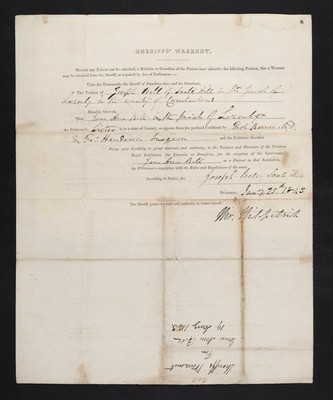 SHERIFFS' WARRANT.
BEFORE any Patient can be admitted, a Relation or Guardian of the Patient must subscribe the following Petition, that a Warrant
may be obtained from the Sheriff, as required by Act of Parliament:—
Unto the Honourable the Sheriff of Dumfries-shire and his Substitute,
The Petition of Joseph Bell of Scale Hill in the parish of
in the county of Cumberland
Humbly Sheweth,
That Jane Ann Bell in the Parish of
the Petitioner's Sister is in a state of Lunacy, as appears from the prefixed Certificate by Thos
Henderson Surgeon and the Petitioner therefore
Prays your Lordship to grant warrant and authority, to the Patrons and Directors of the Crichton
Royal Institution for Lunatics at Dumfries, for the reception of the beforenamed
Jane Ann Bell as a Patient in that Institution,
the Petitioner complying with the Rules and Regulations of the same.
According to Justice, &c. Joseph Bell Scale Hill
DUMFRIES,
The Sheriff grants warrant and authority in terms craved.
Mr. Kirkpatrick
Sheriffs Warrant
For
Jane Ann Bell